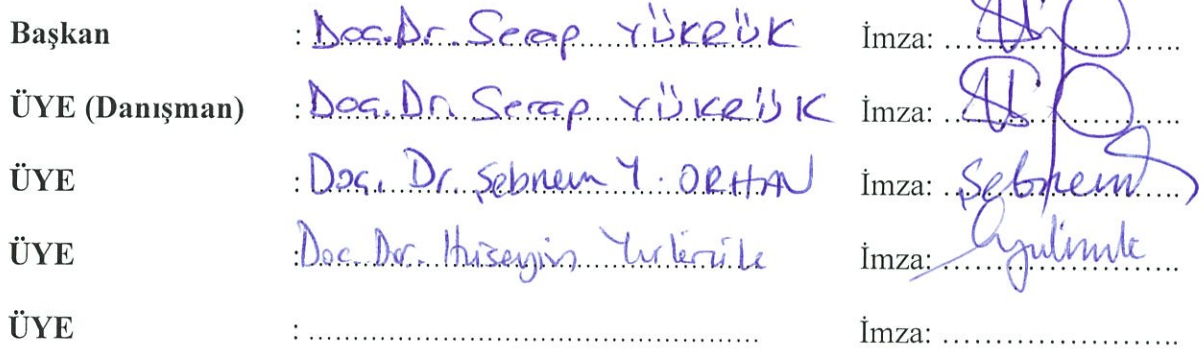 Başkan : Doç. Dr. Serap YÜKRÜK İmza: ........................
ÜYE (Danışman) : Doç. Dr. Serap YÜKRÜK İmza: ........................
ÜYE : Doç. Dr. Şebnem Y. ORHAN İmza: Şebnem
ÜYE : Doç. Dr. Hüseyin İmza: ........................
ÜYE : ............................................. İmza: ........................